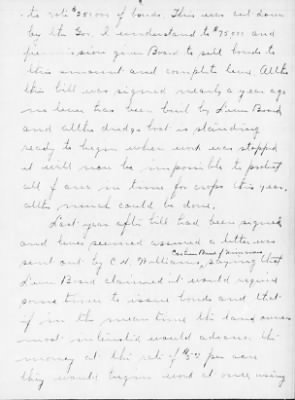 to vote $200000 of bonds. This was cut down
by the Gov. I understand to $75000 and
permission given Board to sell bonds to
this amount and complete levee. Altho
this bill was signed nearly a year ago
no levee has been built by Levee Board
and altho dredge boat is standing
ready to begin when work was stopped
it will now be impossible to protect
all of area in time for crops this year.
altho much could be done.
Last year after bill had been signed
and levee seemed assured a letter was
sent out by C.H. Williams, saying that
Levee Board claimed it would require
some time to issue bonds and that
if in the mean time the land owners
most interested would advance the
money at the rate of $5.00 per acre
they would begin work at once using